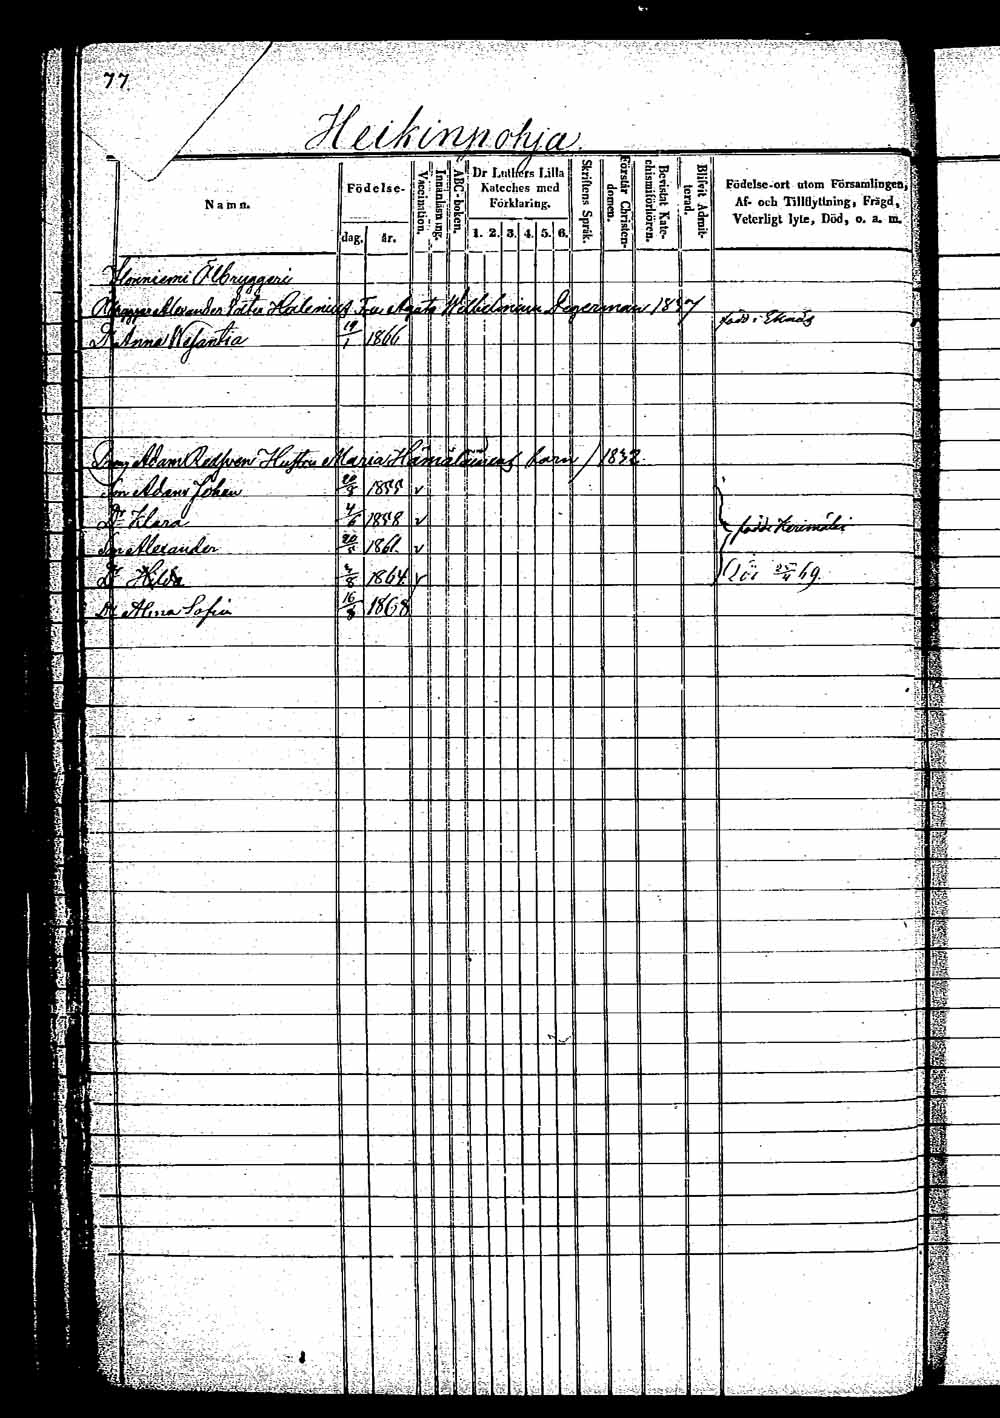 77.
Heikinpohja.
Namn.
Födelse-
dag. år.
Vaccination.
Innanläsning.
ABC-boken.
Dr Luthers Lilla Kateches med Förklaring.
1. 2. 3. 4. 5. 6.
Skriftens Språk.
Förstår Christendomen.
Bevistat Katechismiförhören.
Blifvit Admitterad.
Födelse-ort utom Församlingen,
Af- och Tillflyttning, Frägd,
Veterligt lyte, Död, o. a. m.
Ölbryggeri
Alexander Halenius Fru Agata Wilhelmina Degerman 1837
Dr Anna 19/1 1866 född i Eknäs
Adam Hustru Maria Hämäläinens barn / 1832.
Son Adam Johan 20/8 1855 v
Dr Klara 4/6 1858 v född i Kerimäki
Son Alexander 20/5 1861. v
Dr Hilda 3/8 1864 v
Dr Alma Sofia 16/8 1868